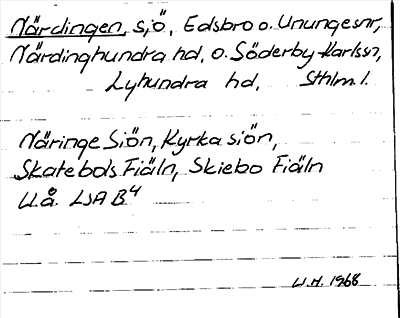 Närdingen, sjö, Edsbro o. Ununge snr,
Närdinghundra hd, o. Söderby-Karlssn,
Lyhundra hd, Sthlm l.
Näringe Siön, Kyrka siön,
Skatebols Fiäln, Skiebo Fiäln
U.å. LSA B4
U.H. 1968